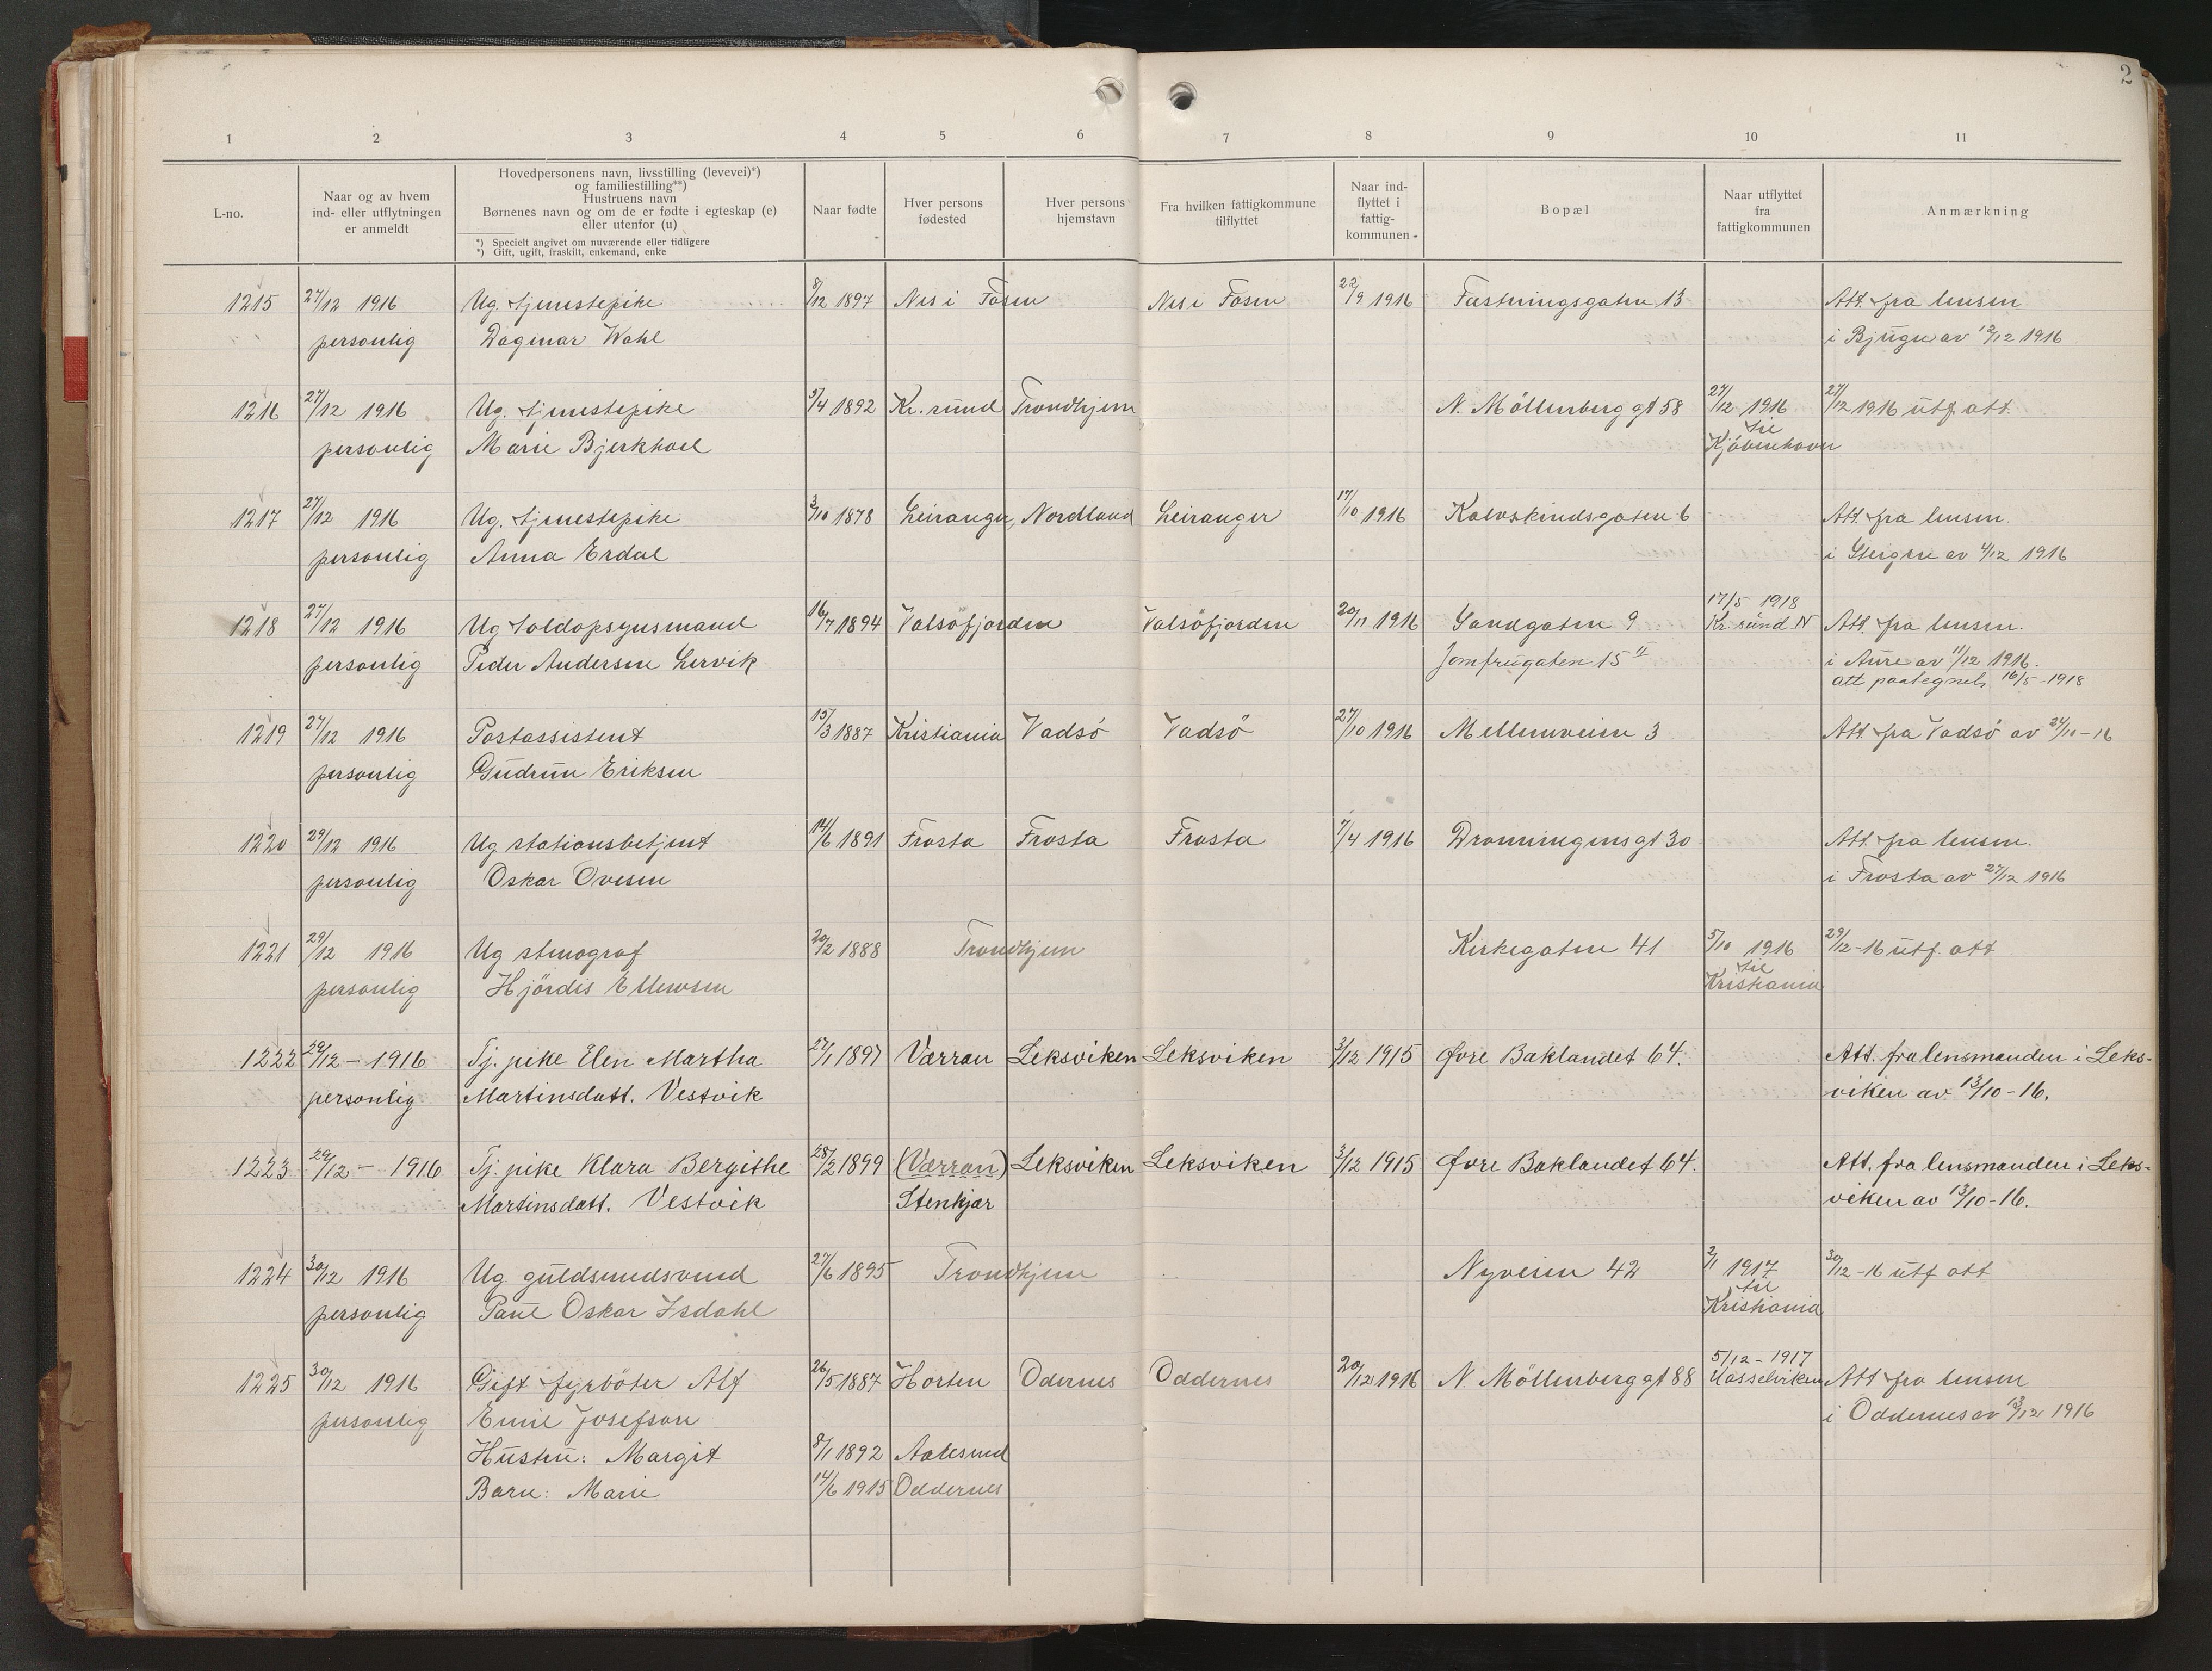 2
1 2 3 4 5 6 7 8 9 10 11
L-no.
Naar og av hvem
ind- eller utflytningen
er anmeldt
Hovedpersonens navn, livsstilling (levevei)*)
og familiestilling**)
Hustruens navn
Børnenes navn og om de er fødte i egteskap (e)
eller utenfor (u)
*) Specielt angivet om nuværende eller tidligere
*) Gift, ugift, fraskilt, enkemand, enke
Naar fødte
Hver persons
fødested
Hver persons
hjemstavn
Fra hvilken fattigkommune
tilflyttet
Naar ind-
flyttet i
fattig-
kommunen
Bopæl
Naar utflyttet
fra
fattigkommunen
Anmærkning
1215 27/12 1916 Ug. tjenestepike 8/12 1897 Nes i Fosen Nes i Fosen 22/9 1916 Fæstningsgaten 13 Att. fra lensm
personlig Dagmar Wahl i Bjugn av 12/12 1916
1216 27/12 1916 Ug. tjenestepike 3/4 1892 Kr.sund Trondhjem N. Möllenberg gt 58 27/12 1916 27/12 1916 utf. att.
til
personlig Marie Bjerkhoel Kjöbenhavn
1217 27/12 1916 Ug. tjenestepike 3/10 1878 Leiranger, Nordland Leiranger 17/10 1916 Kalvskindsgaten 6 Att. fra lensm.
personlig Anna Erdal i Steigen av 4/12 1916
17/5 1918
1218 27/12 1916 Ug toldopsynsmand 16/7 1894 Valsöfjorden Valsöfjorden 20/11 1916 Sandgaten 9 Kr.sund N Att. fra lensm.
personlig Peder Andersen Lervik Jomfrugaten 15 II i Aure av 11/12 1916.
att paategnet 16/5-1918
1219 27/12 1916 Postassistent 15/3 1887 Kristiania Vadsö Vadsö 27/10 1916 Mellemveien 3 Att. fra Vadsö av 24/11-16
personlig Gudrun Eriksen
1220 29/12 1916 Ug stationsbetjent 14/6 1891 Frosta Frosta Frosta 7/4 1916 Dronningens gt 30 Att. fra lensm.
personlig Oskar Ovesen i Frosta av 27/12 1916
1221 29/12 1916 Ug stenograf 20/2 1888 Trondhjem Kirkegaten 41 5/10 1916 29/12-16 utf. att
til
personlig Hjördis Ellewsen Kristiania
1222 29/12 - 1916 Tj. pike Elen Martha 27/1 1897 Værran Leksviken Leksviken 3/12 1915 Øvre Baklandet 64. Att. fra lensmanden i Leks-
personlig Martinsdatt. Vestvik viken av 13/10-16.
1223 29/12 - 1916 Tj. pike Klara Bergithe 28/2 1899 (Værran) Leksviken Leksviken 3/12 1915 Øvre Baklandet 64. Att. fra lensmanden i Leks-
Martinsdatt. Vestvik Stenkjær viken av 13/10-16.
1224 30/12 1916 Ug. guldsmedsvend 27/6 1895 Trondhjem Nyveien 42 2/1 1917 30/12-16 utf att
til
personlig Paul Oskar Isdahl Kristiania
5/12-1917
1225 30/12 1916 Gift fyrböter Alf 26/5 1887 Horten Odernes Oddernes 20/12 1916 N. Möllenberg gt 88 Hasselviken Att fra lensm
personlig Emil Josefson i Oddernes av 13/12 1916
Hustru: Margit 8/1 1892 Aalesund
Barn: Marie 14/6 1915 Oddernes